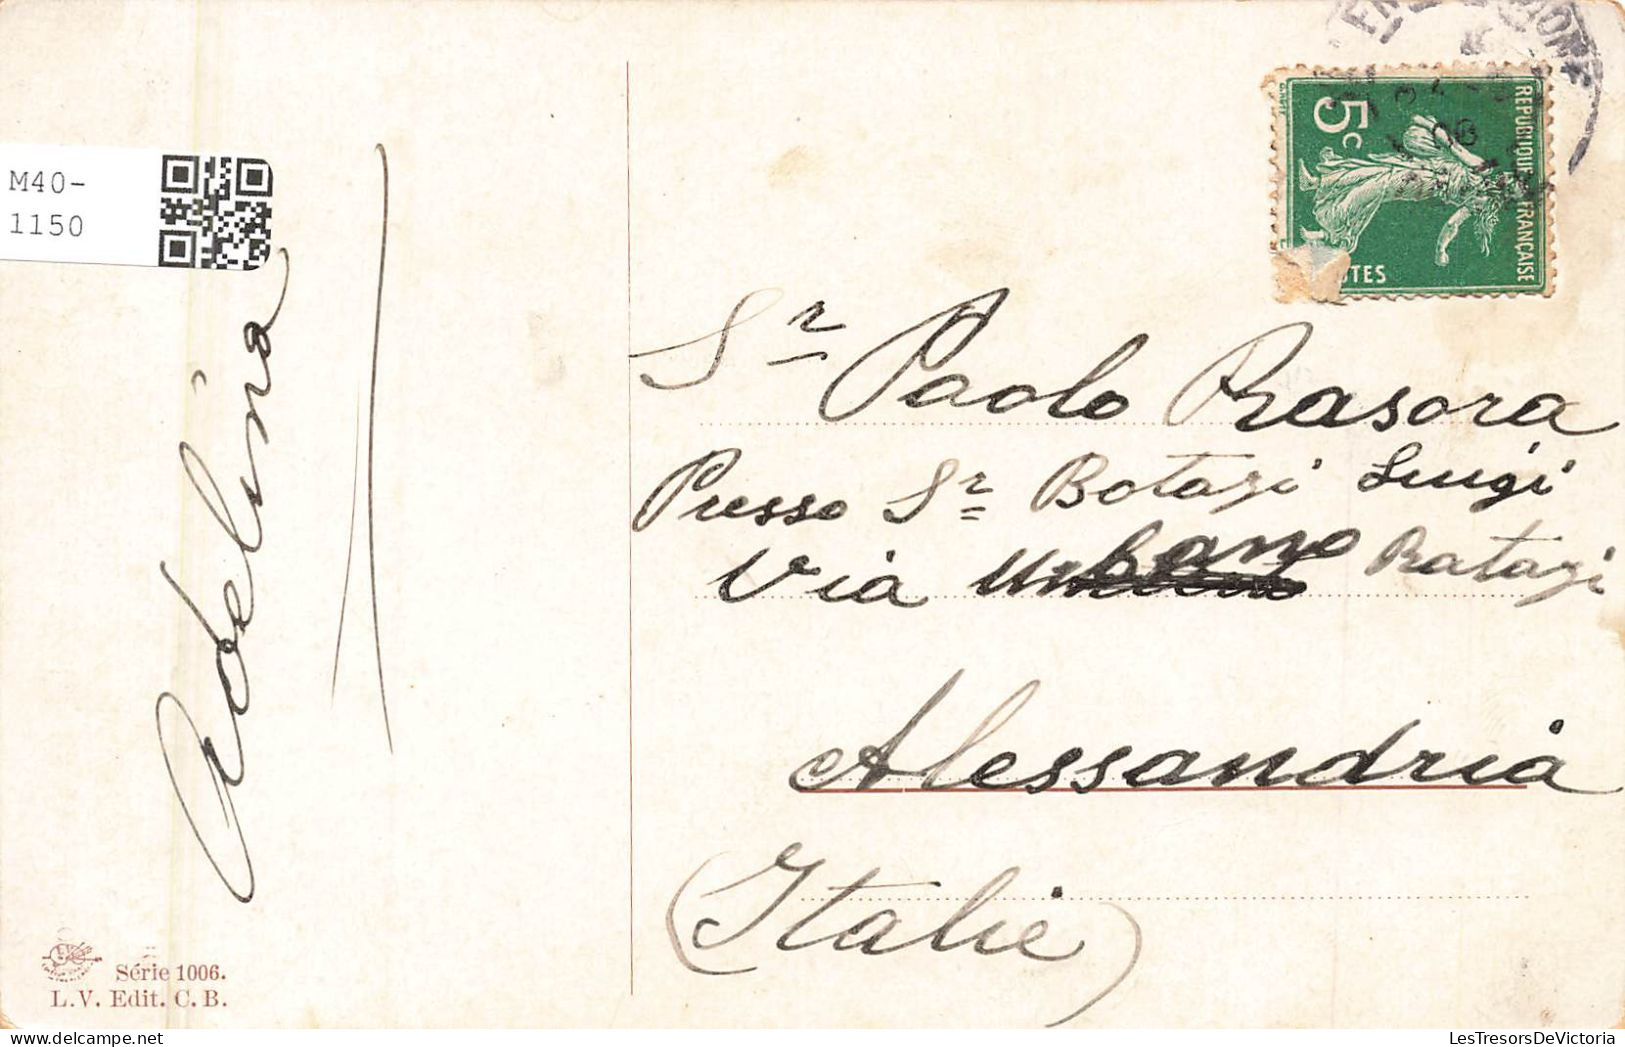 M40-
1150
Adelina
5c
REPUBLIQUE FRANÇAISE
Sr Paolo Rasora
Presso Sr Botazi Luigi
Via Urbano Ratazi
Alessandria
(Italie)
Série 1006.
L.V. Edit. C. B.
LesTresorsDeVictoria